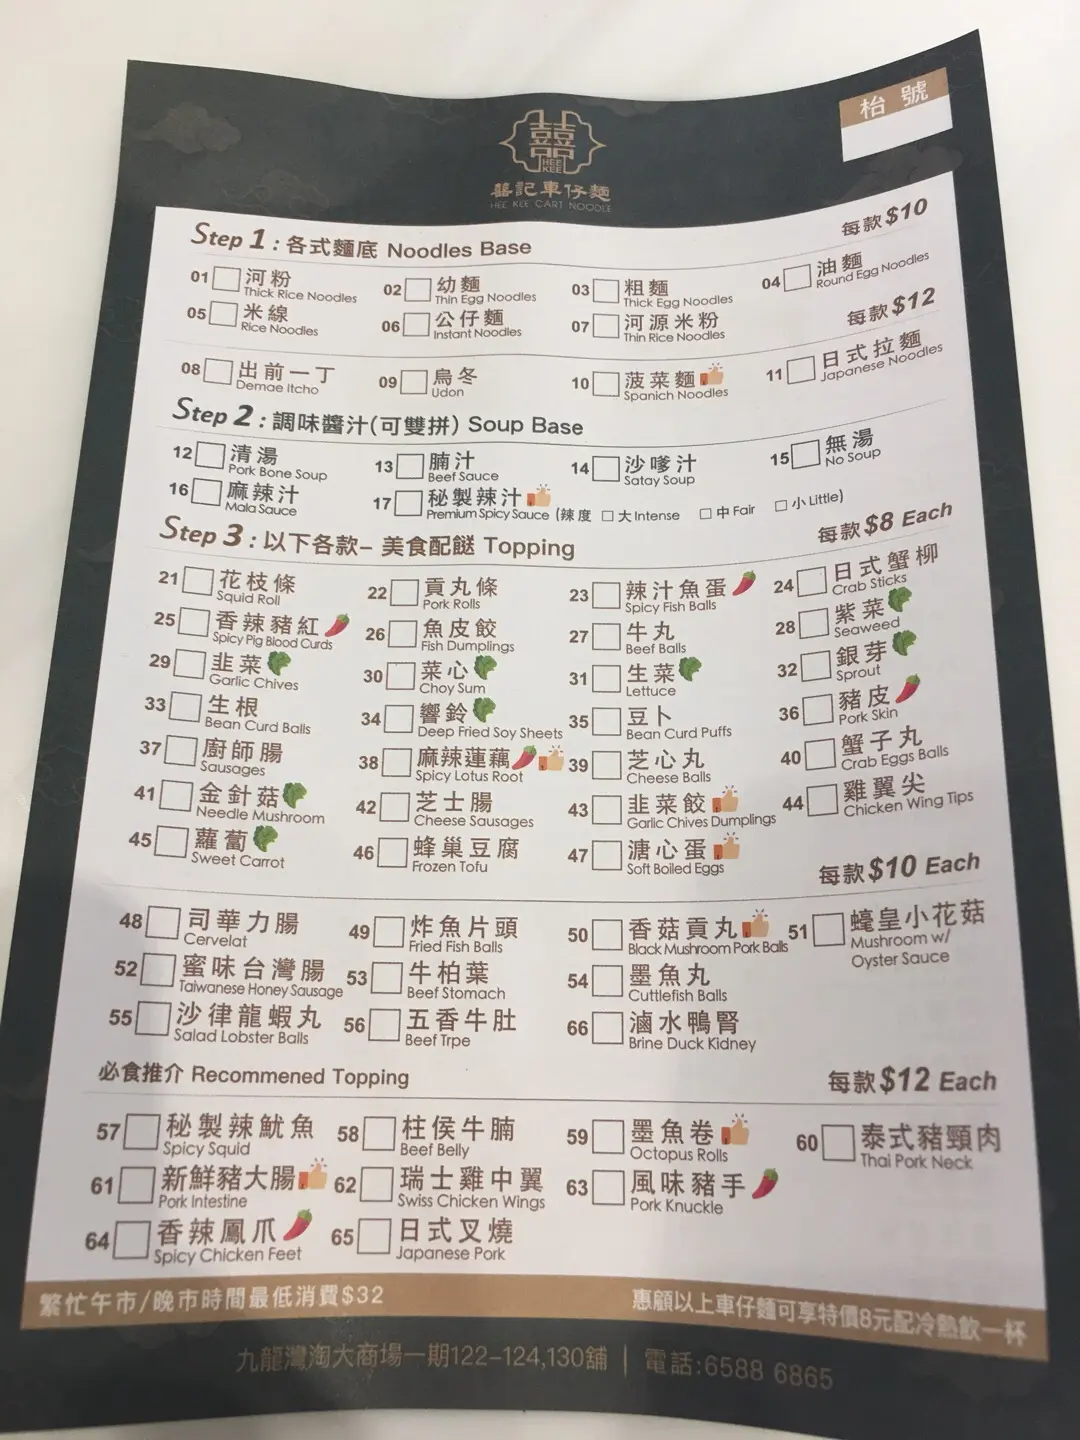 枱號
囍
HEE KEE
囍記車仔麵
HEE KEE CART NOODLE
Step 1 : 各式麵底 Noodles Base 每款$10
01 河粉 Thick Rice Noodles
02 幼麵 Thin Egg Noodles
03 粗麵 Thick Egg Noodles
04 油麵 Round Egg Noodles
05 米線 Rice Noodles
06 公仔麵 Instant Noodles
07 河源米粉 Thin Rice Noodles
每款$12
08 出前一丁 Demae Itcho
09 烏冬 Udon
10 菠菜麵 Spanich Noodles
11 日式拉麵 Japanese Noodles
Step 2 : 調味醬汁(可雙拼) Soup Base
12 清湯 Pork Bone Soup
13 腩汁 Beef Sauce
14 沙嗲汁 Satay Soup
15 無湯 No Soup
16 麻辣汁 Mala Sauce
17 秘製辣汁 Premium Spicy Sauce (辣度 大 Intense 中 Fair 小 Little)
Step 3 : 以下各款– 美食配餸 Topping 每款$8 Each
21 花枝條 Squid Roll
22 貢丸條 Pork Rolls
23 辣汁魚蛋 Spicy Fish Balls
24 日式蟹柳 Crab Sticks
25 香辣豬紅 Spicy Pig Blood Curds
26 魚皮餃 Fish Dumplings
27 牛丸 Beef Balls
28 紫菜 Seaweed
29 韭菜 Garlic Chives
30 菜心 Choy Sum
31 生菜 Lettuce
32 銀芽 Sprout
33 生根 Bean Curd Balls
34 響鈴 Deep Fried Soy Sheets
35 豆卜 Bean Curd Puffs
36 豬皮 Pork Skin
37 廚師腸 Sausages
38 麻辣蓮藕 Spicy Lotus Root
39 芝心丸 Cheese Balls
40 蟹子丸 Crab Eggs Balls
41 金針菇 Needle Mushroom
42 芝士腸 Cheese Sausages
43 韭菜餃 Garlic Chives Dumplings
44 雞翼尖 Chicken Wing Tips
45 蘿蔔 Sweet Carrot
46 蜂巢豆腐 Frozen Tofu
47 溏心蛋 Soft Boiled Eggs
每款$10 Each
48 司華力腸 Cervelat
49 炸魚片頭 Fried Fish Balls
50 香菇貢丸 Black Mushroom Pork Balls
51 蠔皇小花菇 Mushroom w/ Oyster Sauce
52 蜜味台灣腸 Taiwanese Honey Sausage
53 牛柏葉 Beef Stomach
54 墨魚丸 Cuttlefish Balls
55 沙律龍蝦丸 Salad Lobster Balls
56 五香牛肚 Beef Trpe
66 滷水鴨腎 Brine Duck Kidney
必食推介 Recommened Topping 每款$12 Each
57 秘製辣魷魚 Spicy Squid
58 柱侯牛腩 Beef Belly
59 墨魚卷 Octopus Rolls
60 泰式豬頸肉 Thai Pork Neck
61 新鮮豬大腸 Pork Intestine
62 瑞士雞中翼 Swiss Chicken Wings
63 風味豬手 Pork Knuckle
64 香辣鳳爪 Spicy Chicken Feet
65 日式叉燒 Japanese Pork
繁忙午市/晚市時間最低消費$32
惠顧以上車仔麵可享特價8元配冷熱飲一杯
九龍灣淘大商場一期122-124,130舖 | 電話:6588 6865